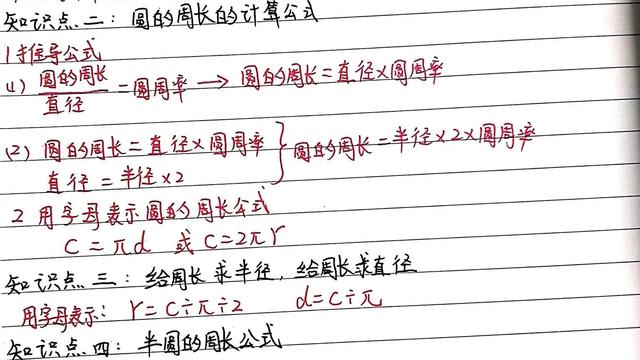 知识点二：圆的周长的计算公式
1 推导公式
(1) 圆的周长/直径 = 圆周率 → 圆的周长=直径×圆周率
(2) 圆的周长=直径×圆周率 } 圆的周长=半径×2×圆周率
直径=半径×2
2 用字母表示圆的周长公式
C=πd 或 C=2πr
知识点三：给周长求半径，给周长求直径
用字母表示： r=C÷π÷2 d=C÷π
知识点四：半圆的周长公式